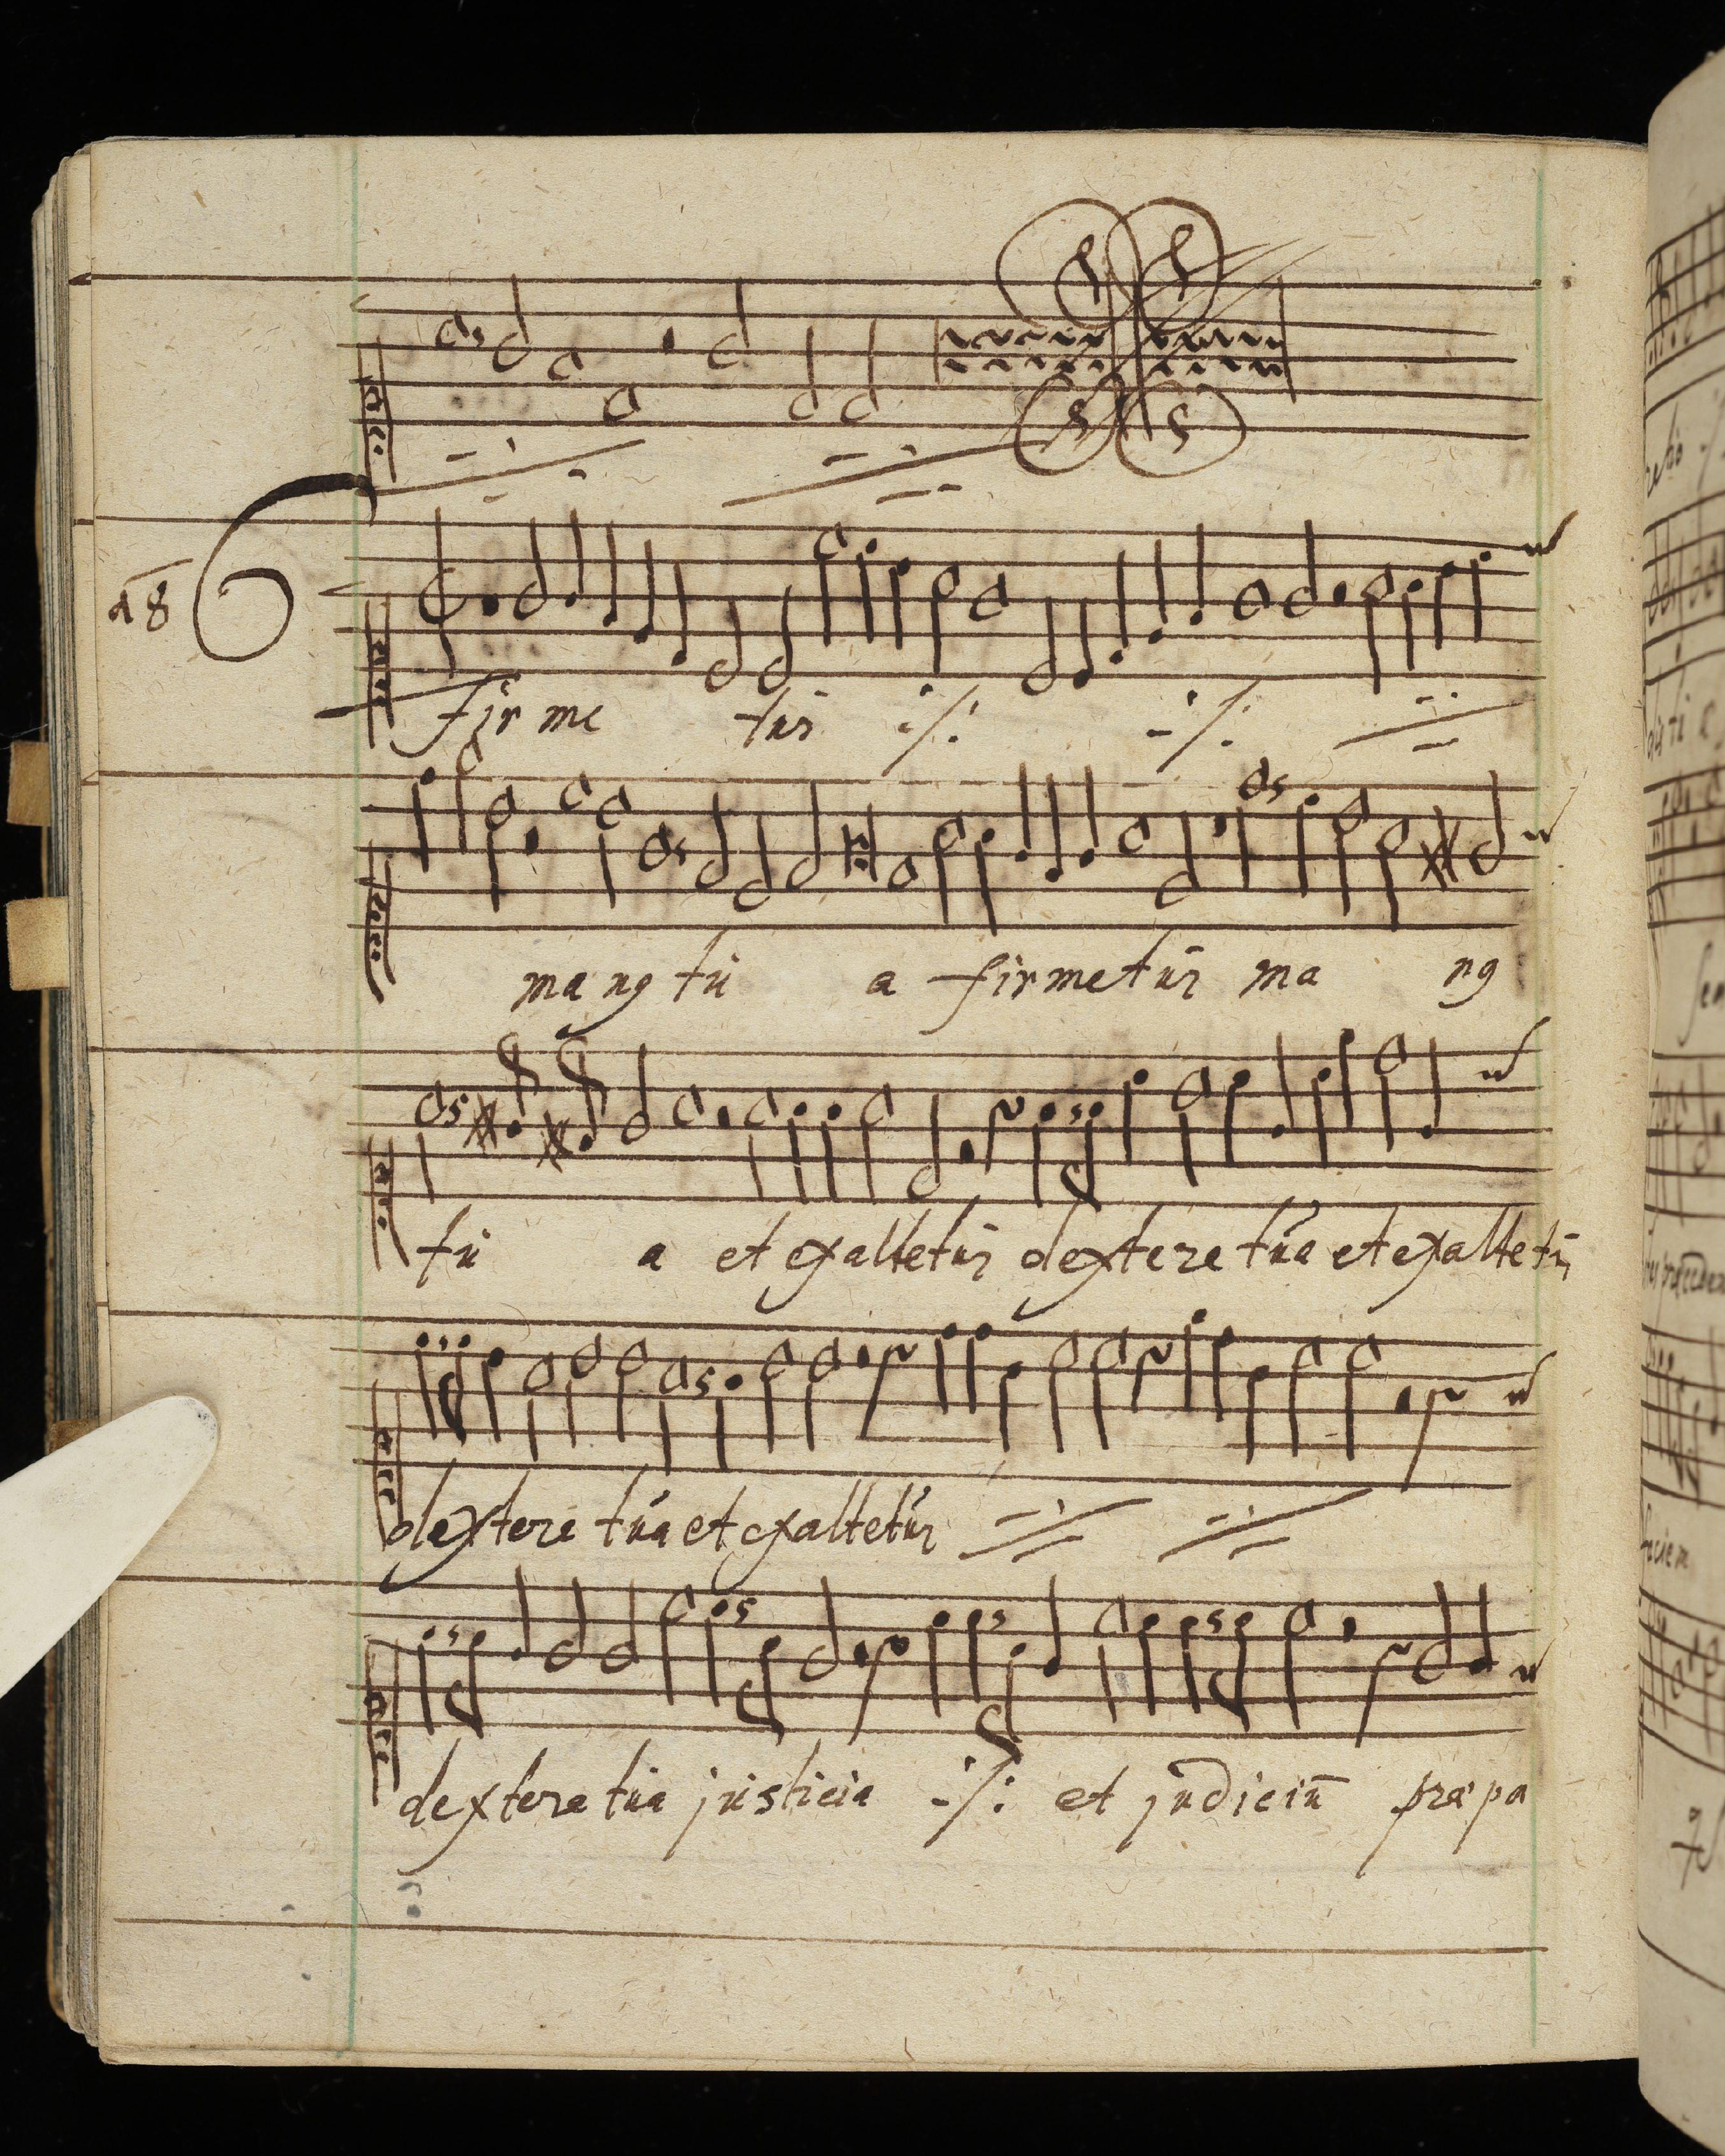 a8
firme tur ·/: -/:
ma ng tu a firmetur ma ng
tu a et exaltetur dextere tua et exaltetur
dextere tua et exaltetur
dextere tua justicia ·/: et judiciū præpa